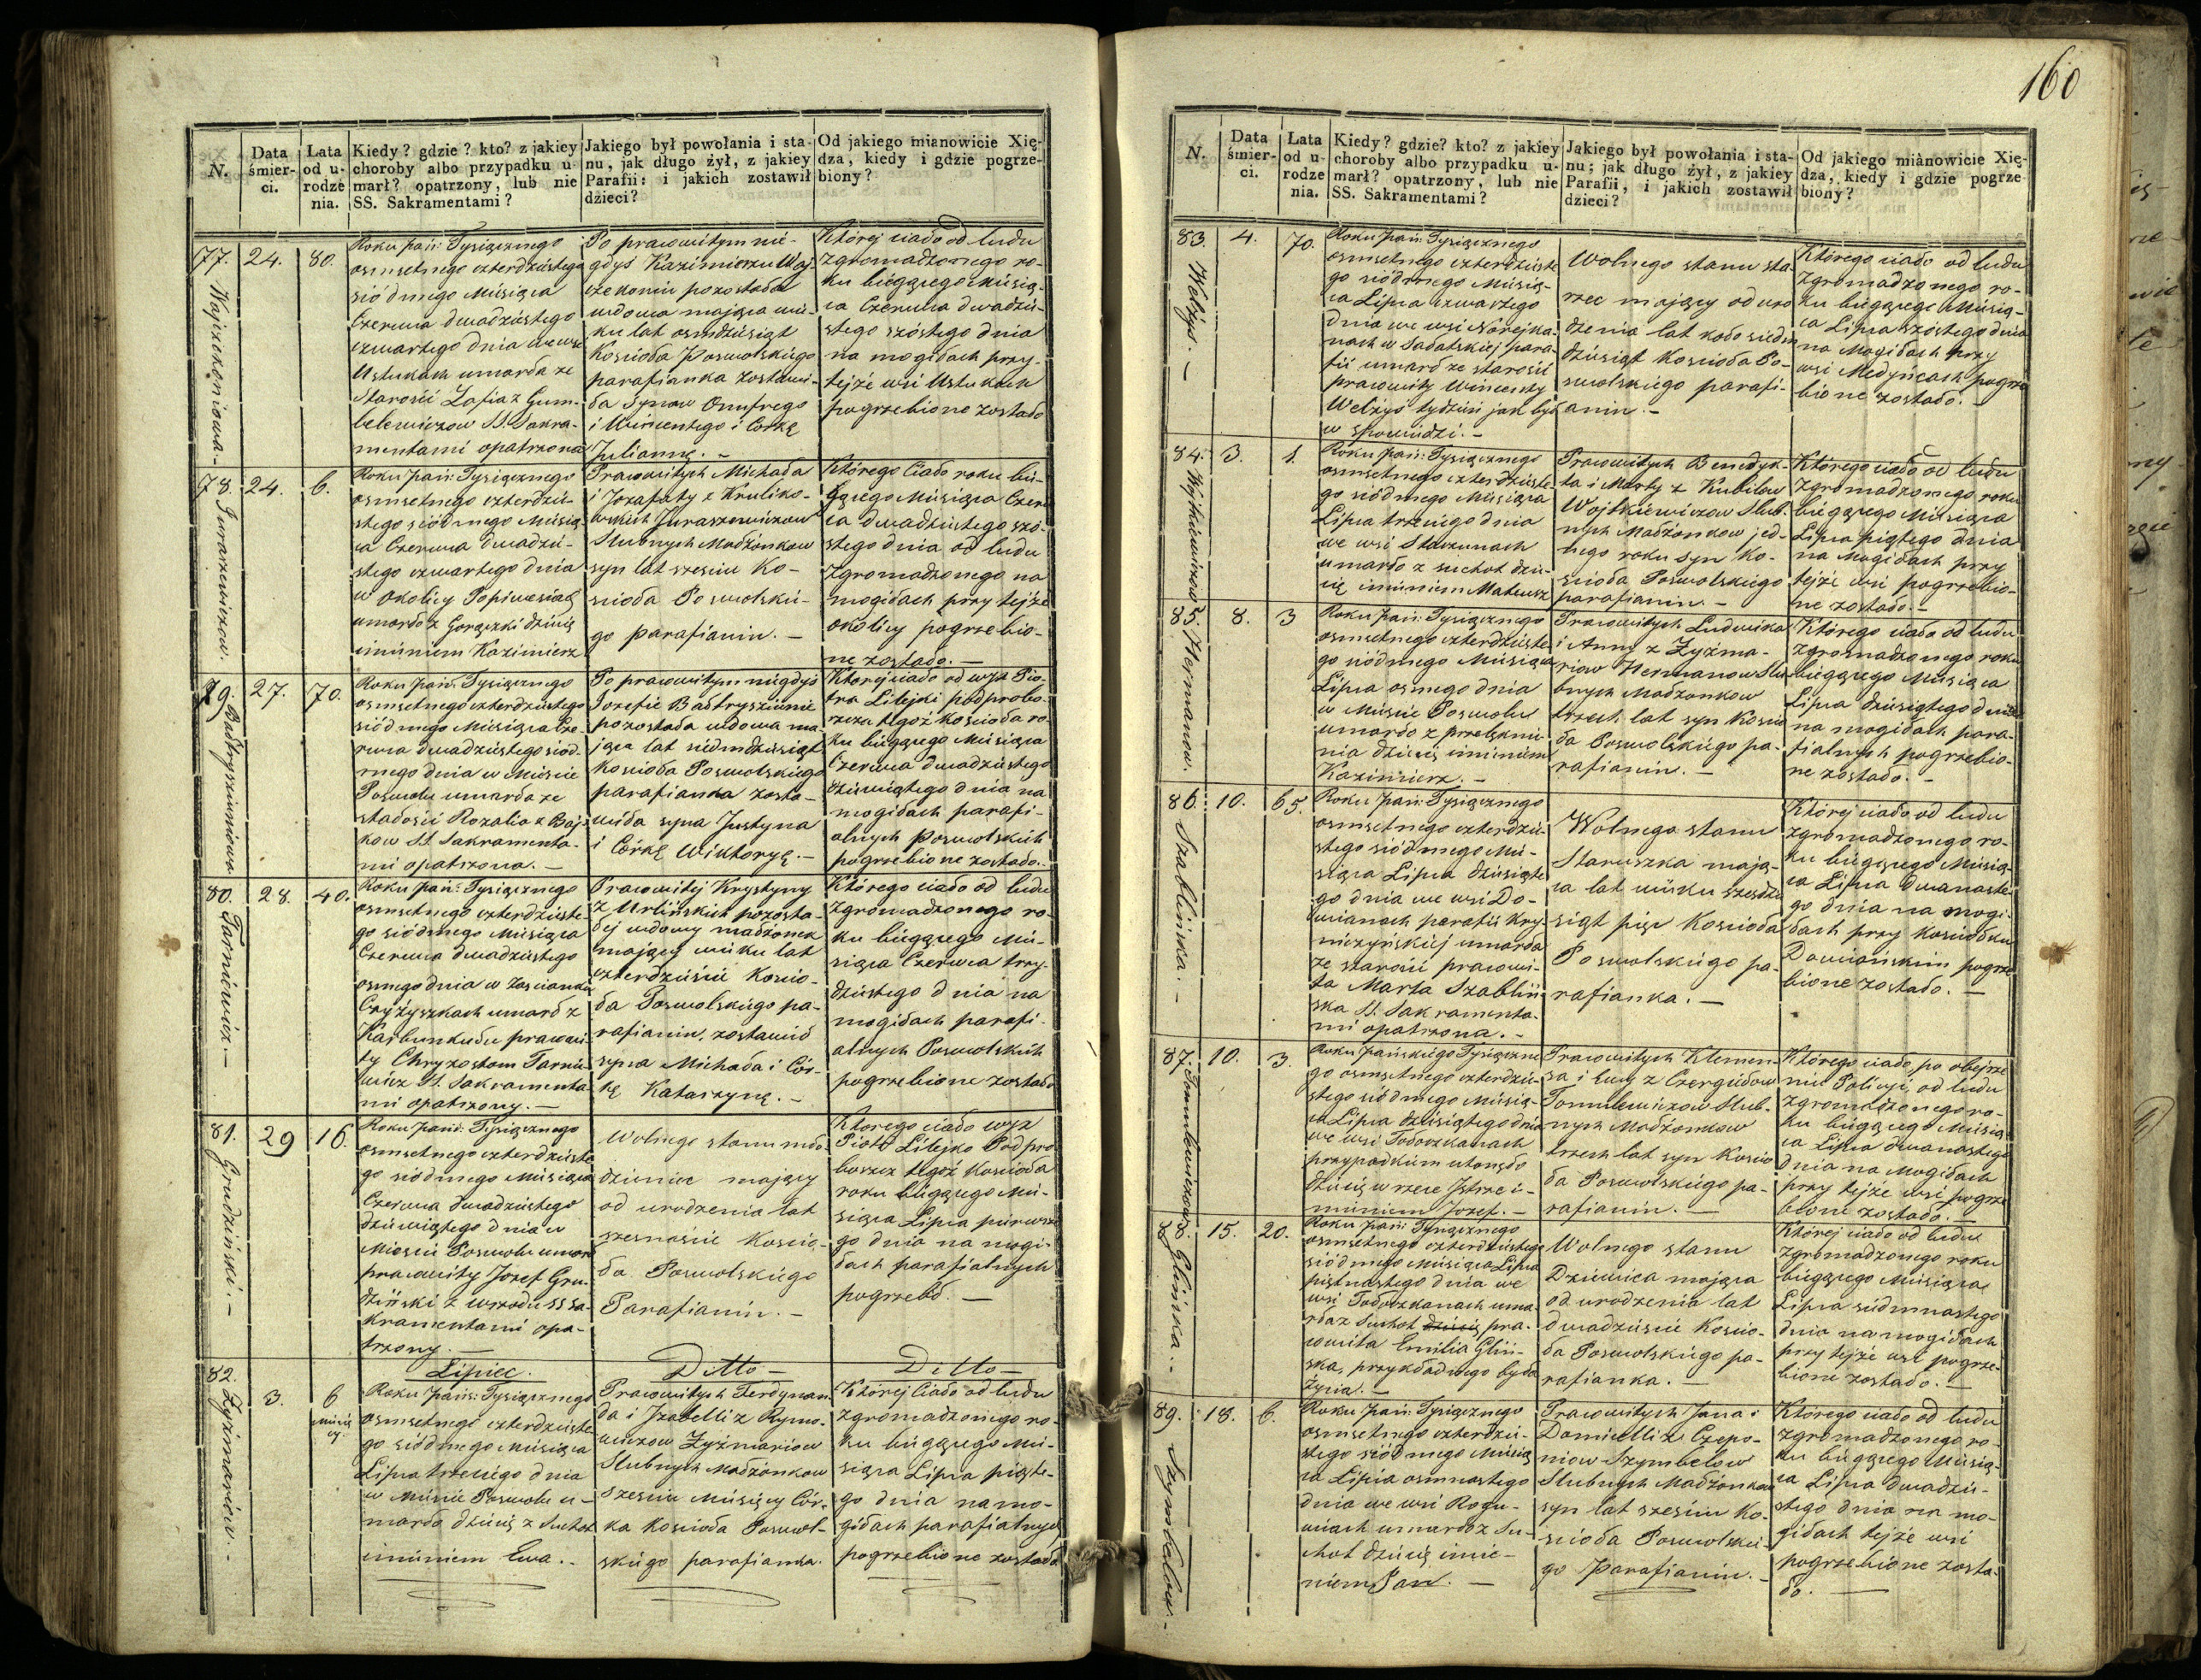 N.
Data śmier-ci.
Lata od u-rodze nia.
Kiedy? gdzie? kto? z jakiey
choroby albo przypadku u-
marł? opatrzony, lub nie
SS. Sakramentami?
Jakiego był powołania i sta-
nu, jak długo żył, z jakiey
Parafii: i jakich zostawił
dzieci?
Od jakiego mianowicie Xię-
dza, kiedy i gdzie pogrze-
biony?
77. 24. 80.
Roku pań: Tysiącznego
osmsetnego czterdziestego
siódmego Miesiąca
Czerwca dwadziestego
czwartego dnia we wsi
Ustukach umarła ze
Starości Zofia z Gum-
belewiczow SS. Sakra-
mentami opatrzona
Po prawowitym nie-
gdyś Kazimierzu Woj-
czekoniu pozostała
wdowa mająca wie-
ku lat osmdziesiąt
Kościoła Poswolskiego
parafianka zostawi-
ła Synow Onufrego
i Wincentego i Corkę
Juliannę. -
Której ciało od ludu
zgromadzonego ro-
ku biegącego Miesią-
ca Czerwca dwadzie-
stego szóstego dnia
na mogiłach przy
tejże wsi Ustukach
pogrzebione zostało
78. Juraszewiczow. 24. 6.
Roku pań: Tysiącznego
osmsetnego czterdzie-
stego siódmego Miesią-
ca Czerwca dwadzie-
stego czwartego dnia
w Okolicy
umarło z Gorączki dziecię
imieniem Kazimierz
Prawowitych Michała
i Jozafaty z Kruliko-
wskich Juraszewiczow
Slubnych Małżonkow
syn lat szesciu Ko-
scioła Poswolskie-
go parafianin. -
Którego Ciało roku bie-
gącego Miesiąca Czerw
ca dwadziestego szó-
stego dnia od ludu
zgromadzonego na
mogiłach przy tejże
okolicy pogrzebio-
ne zostało. -
79. 27. 70.
Roku pań: Tysiącznego
osmsetnego czterdziestego
siódmego Miesiąca Cze-
rwca dwadziestego siod-
mego dnia w Miescie
Poswolu umarła ze
starości Rozalia z Baj-
kow SS. Sakramenta-
mi opatrzona. -
Po prawowitym niegdyś
Jozefie
pozostała wdowa ma-
jąca lat siedmdziesiąt
Kościoła Poswolskiego
parafianka zosta-
wiła syna Justyna
i Córkę Wiktoryę. -
Której ciało od wyż Pio-
tra Litejki podprobo-
szcza tegoż kościoła ro-
ku biegącego Miesiąca
Czerwca dwadziestego
dziewiątego dnia na
mogiłach parafi-
alnych Poswolskich
pogrzebione zostało.
80. Tarniewicz. - 28. 40.
Roku pań: Tysiącznego
osmsetnego czterdzieste-
go siódmego Miesiąca
Czerwca dwadziestego
osmego dnia w Zascianku
Czyżyszkach umarł z
Karbunkułu prawowi-
ty Chryzostom Tarnie-
wicz SS. Sakramenta
mi opatrzony. -
Prawowitej Krystyny
z Urlińskich pozosta-
łej wdowy małżonek
mający wieku lat
czterdzieście Koscio-
ła Poswolskiego pa-
rafianin, zostawił
syna Michała i Cór-
kę Katarzynę. -
Którego ciało od ludu
zgromadzonego ro-
ku biegącego Mie-
siąca Czerwca trzy-
dziestego dnia na
mogiłach parafi-
alnych Poswolskich
pogrzebione zostało
81. Grudziński. - 29 16.
Roku pań: Tysiącznego
osmsetnego czterdzieste
go siódmego Miesiąca
Czerwca dwadziestego
dziewiątego dnia w
Miescie Poswolu umarł
prawowity Jozef Gru-
dziński z wrzodu SS Sa-
kramentami opa-
trzony. -
Wolnego stanu mło-
dzieniec mający
od urodzenia lat
szesnaście Koscio-
ła Poswolskiego
Parafianin. -
Ktorego ciało wyz
Piotr Litejko Podpro
boszcz tegoż Kościoła
roku biegącego Mie-
siąca Lipca pierwsze
go dnia na mogi-
łach parafialnych
pogrzebł. -
Lipiec. Ditto - Ditto -
82. Żyźmariow. - 3. 6 miesię cy.
Roku pań: Tysiącznego
osmsetnego czterdzieste
go siódmego Miesiąca
Lipca trzeciego dnia
w Miescie Poswolu u-
marło dziecię z Suchot
imieniem Ewa. -
Prawowitych Ferdynan
da i Izabelli z Rymo-
wiczow Żyżmariow
Slubnych Małżonkow
Szesciu Miesięcy Cór-
ka Kościoła Poswol-
skiego parafianka.
Której Ciało od ludu
zgromadzonego ro-
ku biegącego Mie-
siąca Lipca piąte-
go dnia na mo-
giłach parafialnych
pogrzebione zostało
160
N.
Data śmier-ci.
Lata od u-rodze nia.
Kiedy? gdzie? kto? z jakiey
choroby albo przypadku u-
marł? opatrzony, lub nie
SS. Sakramentami?
Jakiego był powołania i sta-
nu; jak długo żył, z jakiey
Parafii, i jakich zostawił
dzieci?
Od jakiego miànowicie Xię-
dza, kiedy i gdzie pogrze-
biony?
83. Welżys. - 4. 70.
Roku pań: Tysiącznego
osmsetnego czterdzieste
go siódmego Miesią-
ca Lipca czwartego
dnia we wsi Norejka-
nach w Sałatskiej para-
fii umarł ze starości
prawowity Wincenty
Welżys tydzień jak był
w spowiedzi. -
Wolnego stanu sta
rzec mający od uro
dzenia lat koło siedm
dziesiąt Kościoła Po-
swolskiego parafi-
anin. -
Którego ciało od ludu
zgromadzonego ro-
ku biegącego Miesią-
ca Lipca szóstego dnia
na Mogiłach przy
wsi Medyńcach pogrze
bione zostało. -
84. Wojtkiewiczow 3. 1.
Roku pań: Tysiącznego
osmsetnego czterdzieste
go siódmego Miesiąca
Lipca trzeciego dnia
we wsi Stawunach
umarło z suchot dzie-
cię imieniem Mateusz
Prawowitych Benedyk-
ta i Marty z Kubilow
Wojtkiewiczow Slub-
nych Małżonkow jed-
nego roku syn Ko-
scioła Poswolskiego
parafianin. -
Którego ciało od ludu
zgromadzonego roku
biegącego Miesiąca
Lipca piątego dnia
na Mogiłach przy
tejże wsi pogrzebio-
ne zostało. -
85. Hermanow. 8. 3
Roku pań: Tysiącznego
osmsetnego czterdzieste
go siódmego Miesiąca
Lipca osmego dnia
w Miescie Poswolu
umarło z przelęknie-
nia dziecię imieniem
Kazimierz. -
Prawowitych Ludwika
i Anny z Żyżma-
riow Hermanow Slu-
bnych Małżonkow
trzech lat syn Koscio
ła Poswolskiego pa-
rafianin. -
Którego ciało od ludu
zgromadzonego roku
biegącego Miesiąca
Lipca dziesiątego dnia
na mogiłach para-
fialnych pogrzebio-
ne zostało. -
86. Szablińska. - 10. 65.
Roku pań: Tysiącznego
osmsetnego czterdzie-
stego siódmego Mie-
siąca Lipca dziesiąte
go dnia we wsi Do-
wianach parafii Kry-
niczyńskiej umarła
ze starości prawowi-
ta Marta Szabliń-
ska SS. Sakramenta-
mi opatrzona. -
Wolnego stanu
Staruszka mają-
ca lat wieku szesdzie
siąt pięc Kościoła
Poswolskiego pa-
rafianka. -
Której ciało od ludu
zgromadzonego ro-
ku biegącego Miesią-
ca Lipca dwanaste-
go dnia na mogi-
łach przy kosciołku
Dowiańskim pogrze
bione zostało. -
87. Tomulewiczow 10. 3.
Roku Pańskiego Tysiączne
go osmsetnego czterdzie-
stego siódmego Miesią-
ca Lipca dziesiątego dnia
we wsi Tołoczkanach
przypadkiem utonęło
dziecię w rzece Istrze i-
mieniem Jozef. -
Prawowitych Klemen-
sa i Ewy z Czergiełow
Tomulewiczow Slub-
nych Małżonkow
trzech lat syn Koscio
ła Poswolskiego pa-
rafianin. -
Którego ciało, po obejrze
niu Policyi, od ludu
zgromadzonego ro-
ku biegącego Miesią
ca Lipca dwanastego
dnia na Mogiłach
przy tejże wsi pogrze
bione zostało. -
88. Glińska. - 15. 20.
Roku pań: Tysiącznego
osmsetnego czterdziestego
siódmego Miesiąca Lipca
piętnastego dnia we
wsi Tołoczkanach uma-
rła z Suchot dziecię pra-
wowita Emilia Gliń-
ska, przykładnego była
życia. -
Wolnego stanu
Dziewica mająca
od urodzenia lat
dwadzieście Koscio-
ła Poswolskiego pa-
rafianka. -
Której ciało od ludu
zgromadzonego roku
biegącego Miesiąca
Lipca siedmnastego
dnia na mogiłach
przy tejże wsi pogrze-
bione zostało. -
89. Szymbelow. - 18. 6.
Roku pań: Tysiącznego
osmsetnego czterdzie-
stego siódmego Miesią
ca Lipca osmnastego
dnia we wsi Rogu-
wiach umarło z Su-
chot dziecię imie-
niem Jan. -
Prawowitych Jana i
Danielli z Czepo-
niow Szymbelow
Slubnych Małżonkow
syn lat szesciu Ko-
scioła Poswolskie-
go Parafianin. -
Którego ciało od ludu
zgromadzonego ro-
ku biegącego Miesią-
ca Lipca dwadzie-
stego dnia na mo-
giłach tejże wsi
pogrzebione zosta-
ło. -